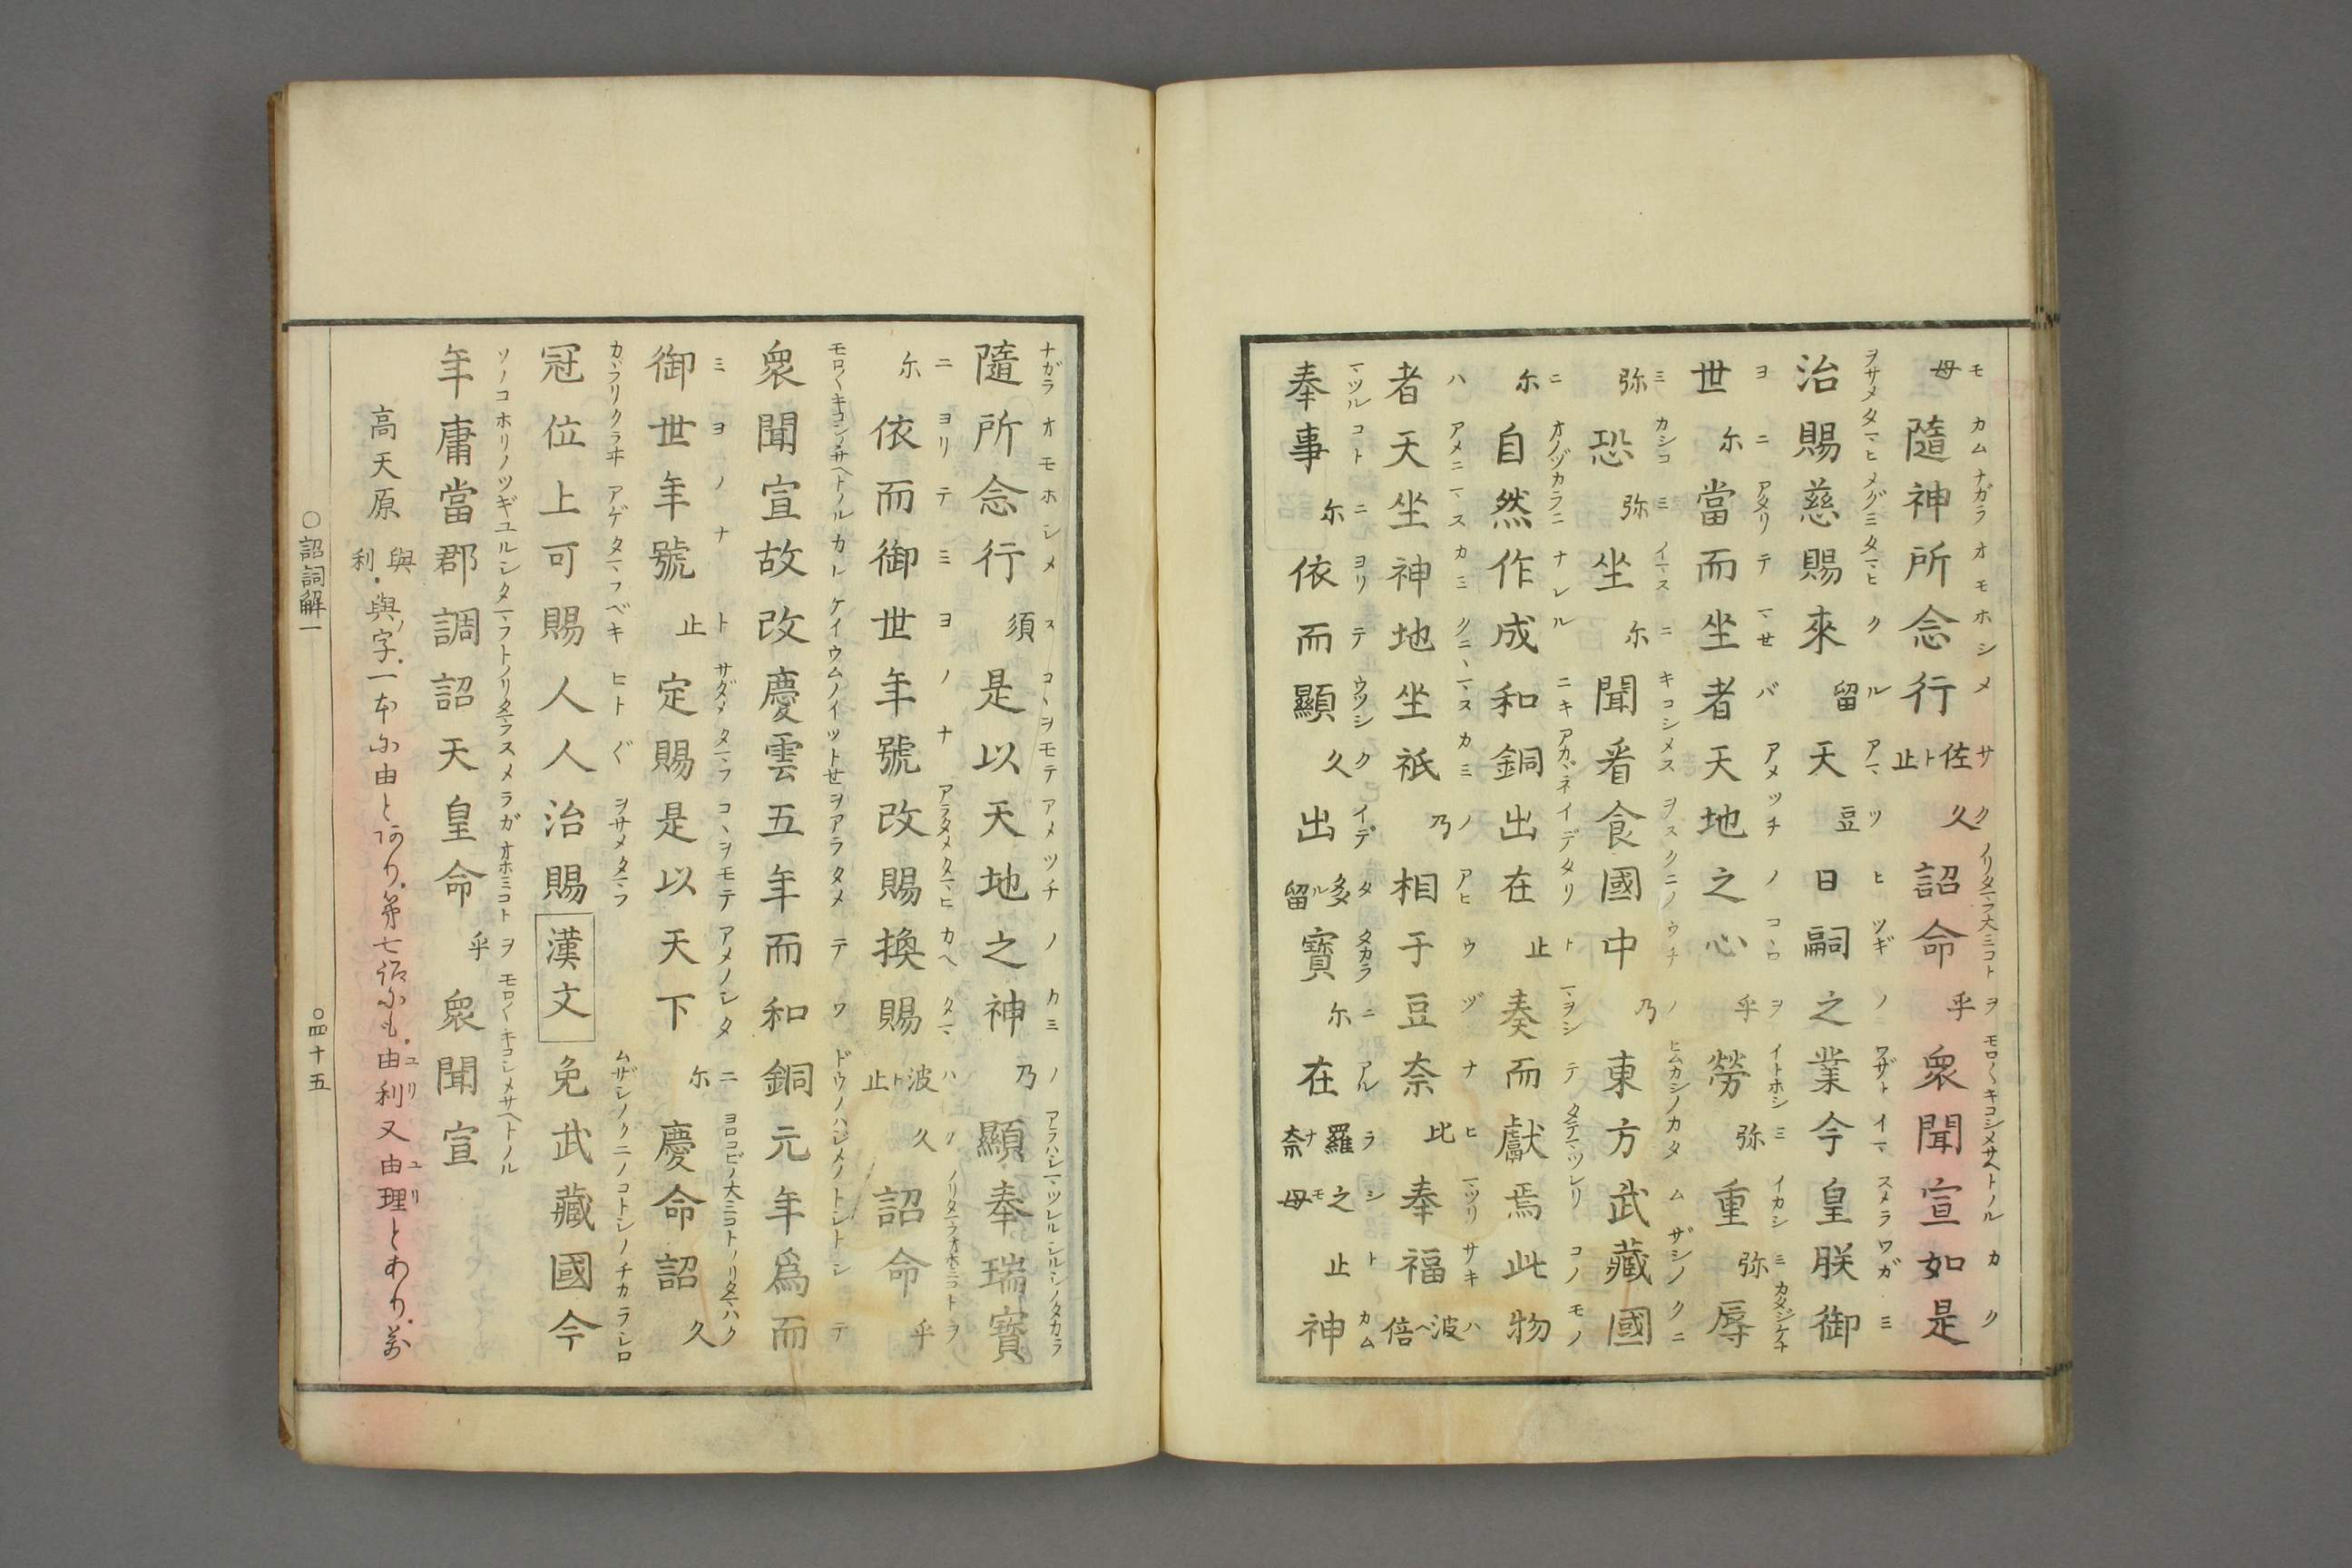 母隨神所念行佐久止詔命乎衆聞宣如是
治賜慈賜來留天豆日嗣之業今皇朕御
世尓當而坐者天地之心乎勞弥重弥辱
弥恐弥坐尓聞看食國中乃東方武藏國
尓自然作成和銅出在止奏而獻焉此物
者天坐神地坐祇乃相于豆奈比奉福波倍
奉事尓依而顯久出多留寶尓在羅之奈母止神
隨所念行須是以天地之神乃顯奉瑞寶
尓依而御世年號改賜換賜波久止詔命乎
衆聞宣故改慶雲五年而和銅元年爲而
御世年號止定賜是以天下尓慶命詔久
冠位上可賜人人治賜漢文免武藏國今
年庸當郡調詔天皇命乎衆聞宣
高天原與利。與ノ字。一本尓由とあり。第七詔にも。由利又由理とあり。萬
○詔詞解一
○四十五